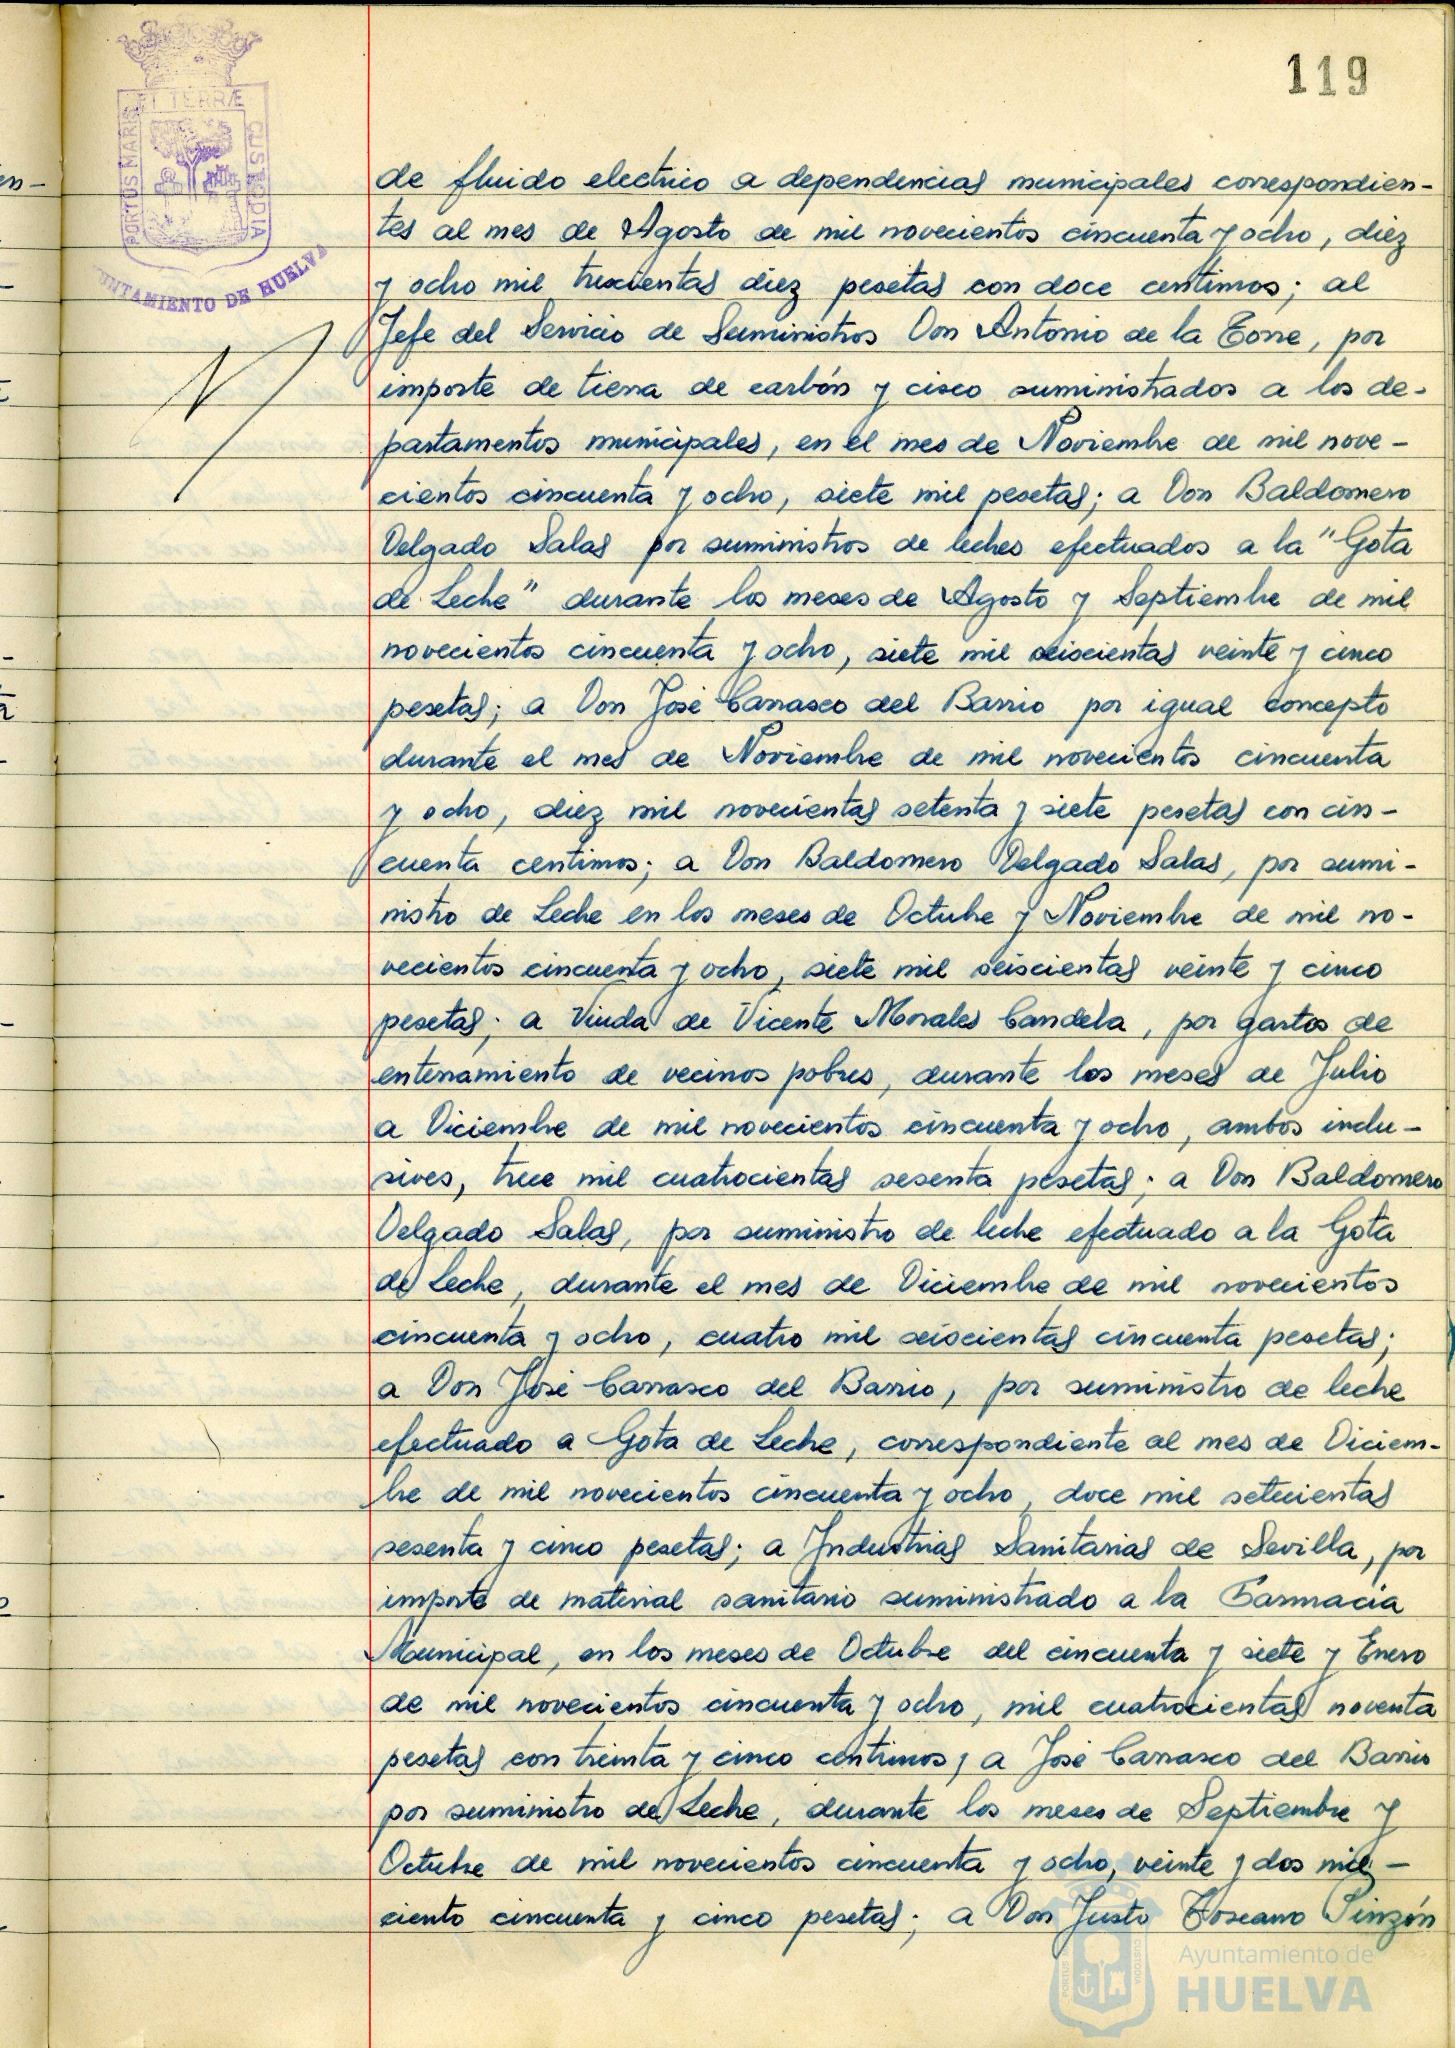 119
PORTUS MARIS ET TERRÆ CUSTODIA
UNTAMIENTO DE HUELVA
de fluido electrico a dependencias municipales correspondien-
tes al mes de Agosto de mil novecientos cincuenta y ocho, diez
y ocho mil trescientas diez pesetas con doce centimos; al
Jefe del Servicio de Suministros Don Antonio de la Torre, por
importe de tierra de carbón y cisco suministrados a los de-
partamentos municipales, en el mes de Noviembre de mil nove-
cientos cincuenta y ocho, siete mil pesetas; a Don Baldomero
Delgado Salas por suministros de leches efectuados a la "Gota
de Leche" durante los meses de Agosto y Septiembre de mil
novecientos cincuenta y ocho, siete mil seiscientas veinte y cinco
pesetas; a Don José Carrasco del Barrio por igual concepto
durante el mes de Noviembre de mil novecientos cincuenta
y ocho, diez mil novecientas setenta y siete pesetas con cin-
cuenta centimos; a Don Baldomero Delgado Salas, por sumi-
nistro de Leche en los meses de Octubre y Noviembre de mil no-
vecientos cincuenta y ocho, siete mil seiscientas veinte y cinco
pesetas; a Viuda de Vicente Morales Candela, por gastos de
enterramiento de vecinos pobres, durante los meses de Julio
a Diciembre de mil novecientos cincuenta y ocho, ambos inclu-
sives, trece mil cuatrocientas sesenta pesetas; a Don Baldomero
Delgado Salas, por suministro de leche efectuado a la Gota
de Leche, durante el mes de Diciembre de mil novecientos
cincuenta y ocho, cuatro mil seiscientas cincuenta pesetas;
a Don José Carrasco del Barrio, por suministro de leche
efectuado a Gota de Leche, correspondiente al mes de Diciem-
bre de mil novecientos cincuenta y ocho, doce mil setecientas
sesenta y cinco pesetas; a Industrias Sanitarias de Sevilla, por
importe de material sanitario suministrado a la Farmacia
Municipal, en los meses de Octubre del cincuenta y siete y Enero
de mil novecientos cincuenta y ocho, mil cuatrocientas noventa
pesetas con treinta y cinco centimos; a José Carrasco del Barrio
por suministro de Leche, durante los meses de Septiembre y
Octubre de mil novecientos cincuenta y ocho, veinte y dos mil -
ciento cincuenta y cinco pesetas; a Don Justo Toscano Pinzón
Ayuntamiento de
HUELVA